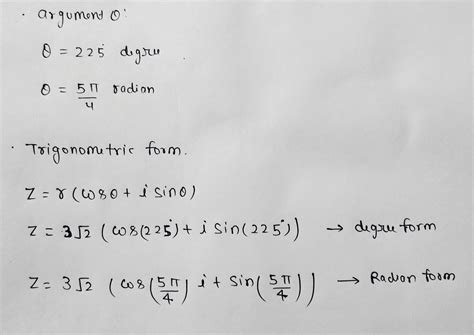 · argument θ:
θ = 225° degree
θ = 5π/4 radian
· Trigonometric form.
Z = r (cosθ + i sinθ)
Z = 3√2 (cos(225°) + i sin(225°)) → degree form
Z = 3√2 (cos(5π/4) i + sin(5π/4)) → Radian form